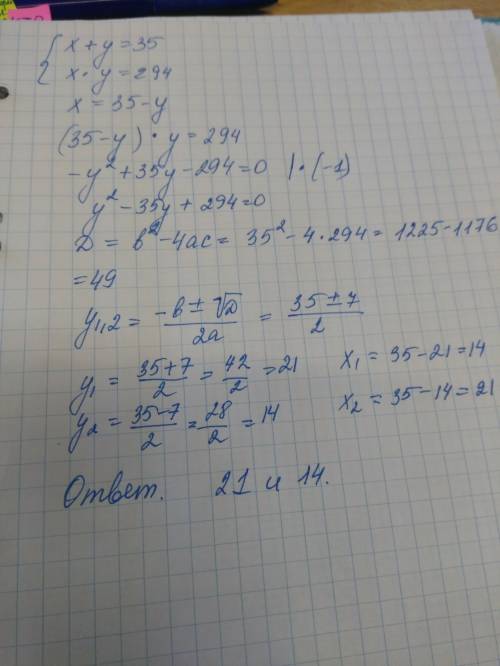 { x + y = 35
x · y = 294
x = 35 - y
(35 - y) · y = 294
-y² + 35y - 294 = 0 | · (-1)
y² - 35y + 294 = 0
D = b² - 4ac = 35² - 4 · 294 = 1225 - 1176
= 49
y₁,₂ = (-b ± √D)/(2a) = (35 ± 7)/2
y₁ = (35+7)/2 = 42/2 = 21 x₁ = 35 - 21 = 14
y₂ = (35-7)/2 = 28/2 = 14 x₂ = 35 - 14 = 21
Ответ. 21 и 14.